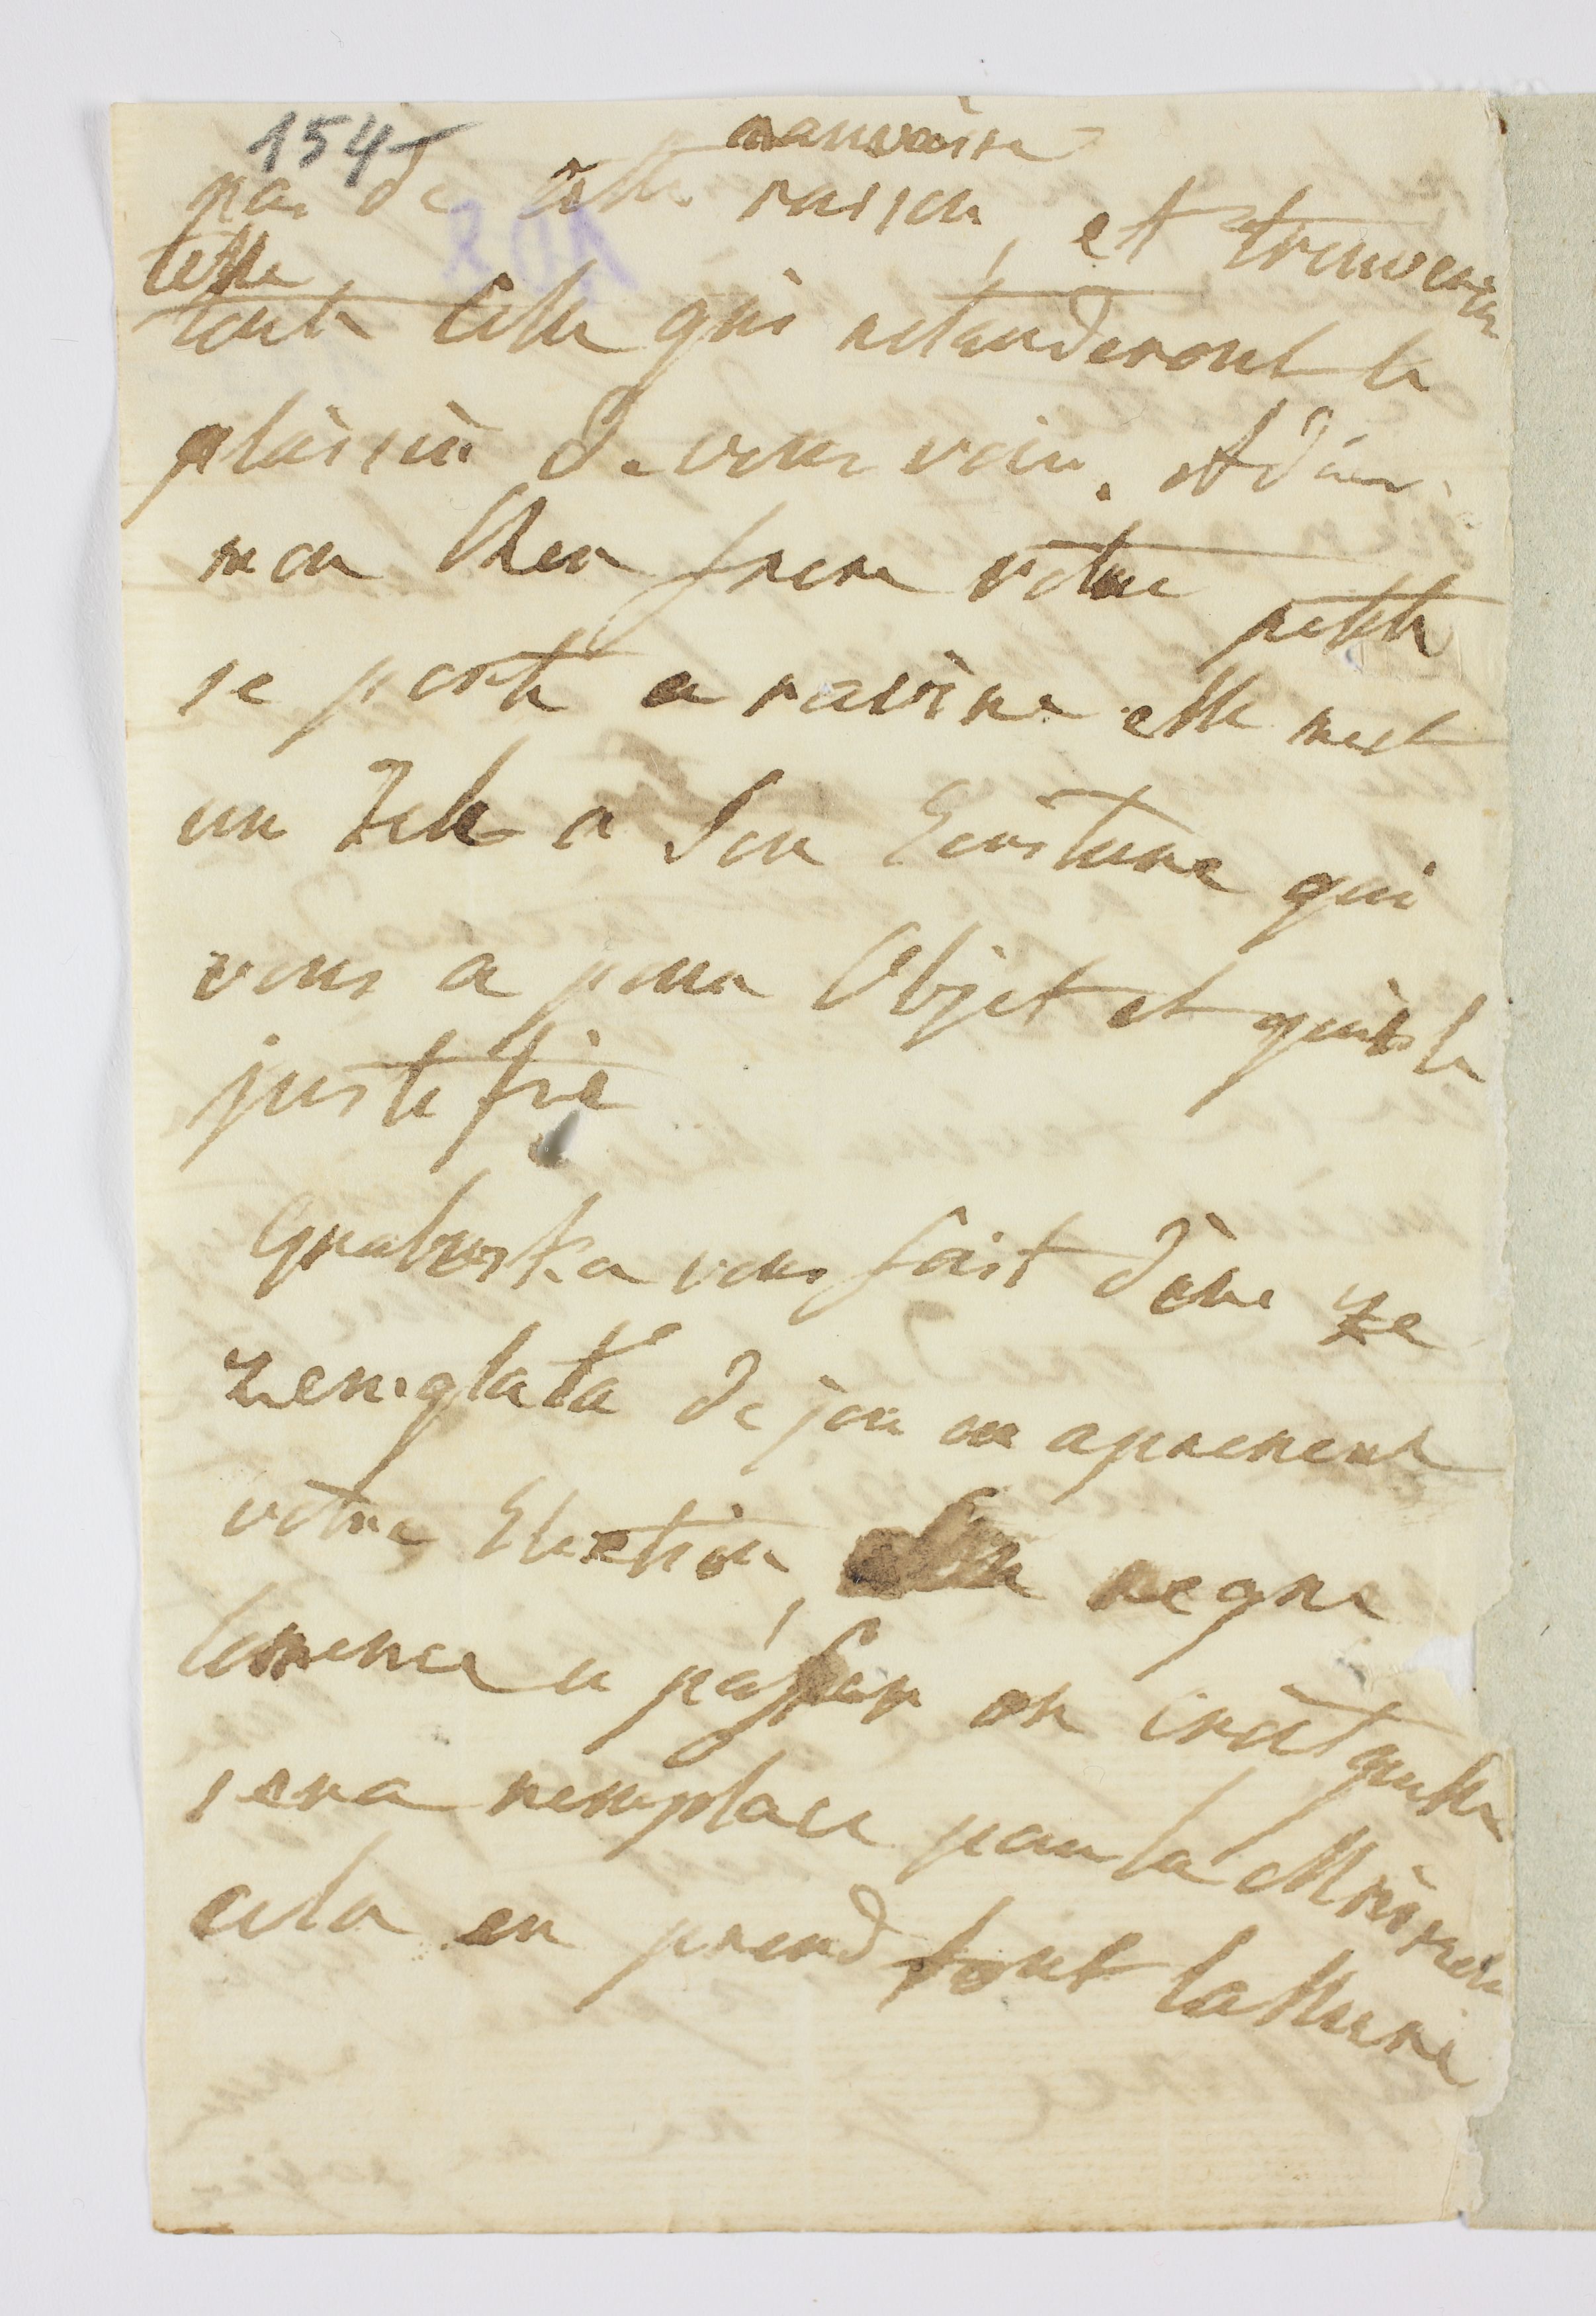 154
mauvaise
pas de cette raison, et trouverés
telle
toute celle qui retarderont le
plaisir de vous voir. Adieu
mon Cher frere votre petite
se porte a ravire elle met
un Zele a Son Ecriture qui
vous a pour Objet et qui la
justifie
Grabowska vous fait dire ze
zemglała de joie en aprenent
votre Election, regne
comence a passer on croit quelle
sera remplacé par la
cela en prend tout lallure